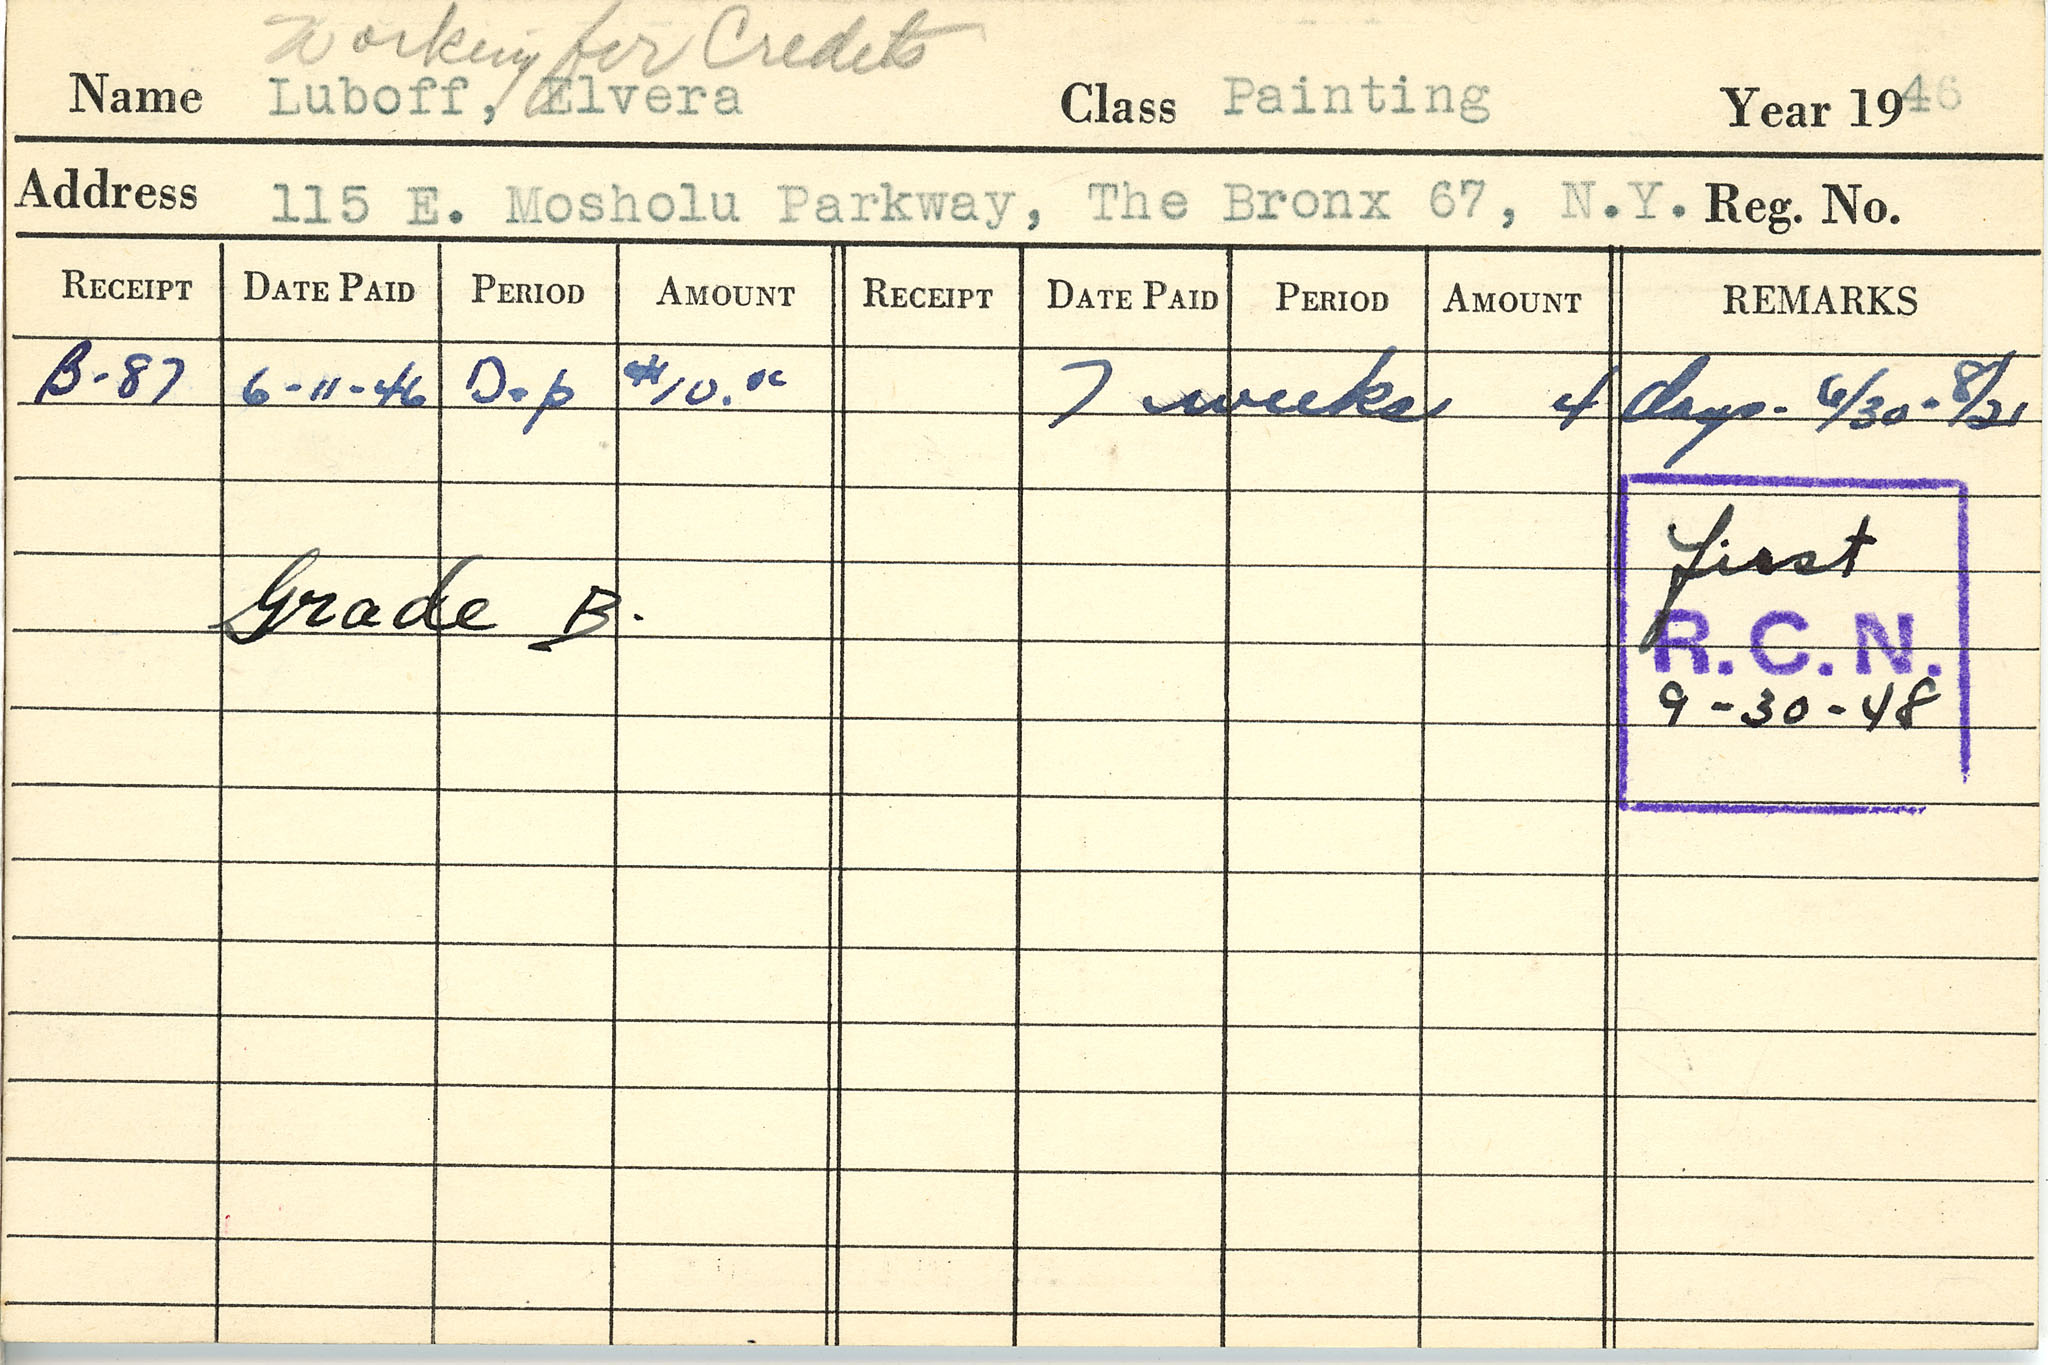 Working for Credits
Name Luboff, Elvera Class Painting Year 1946
Address 115 E. Mosholu Parkway, The Bronx 67, N.Y. Reg. No.
RECEIPT DATE PAID PERIOD AMOUNT RECEIPT DATE PAID PERIOD AMOUNT REMARKS
B-87 6-11-46 Dep #10.00 7 weeks 4 days - 6/30-8/21
first
Grade B.
R.C.N.
9-30-48